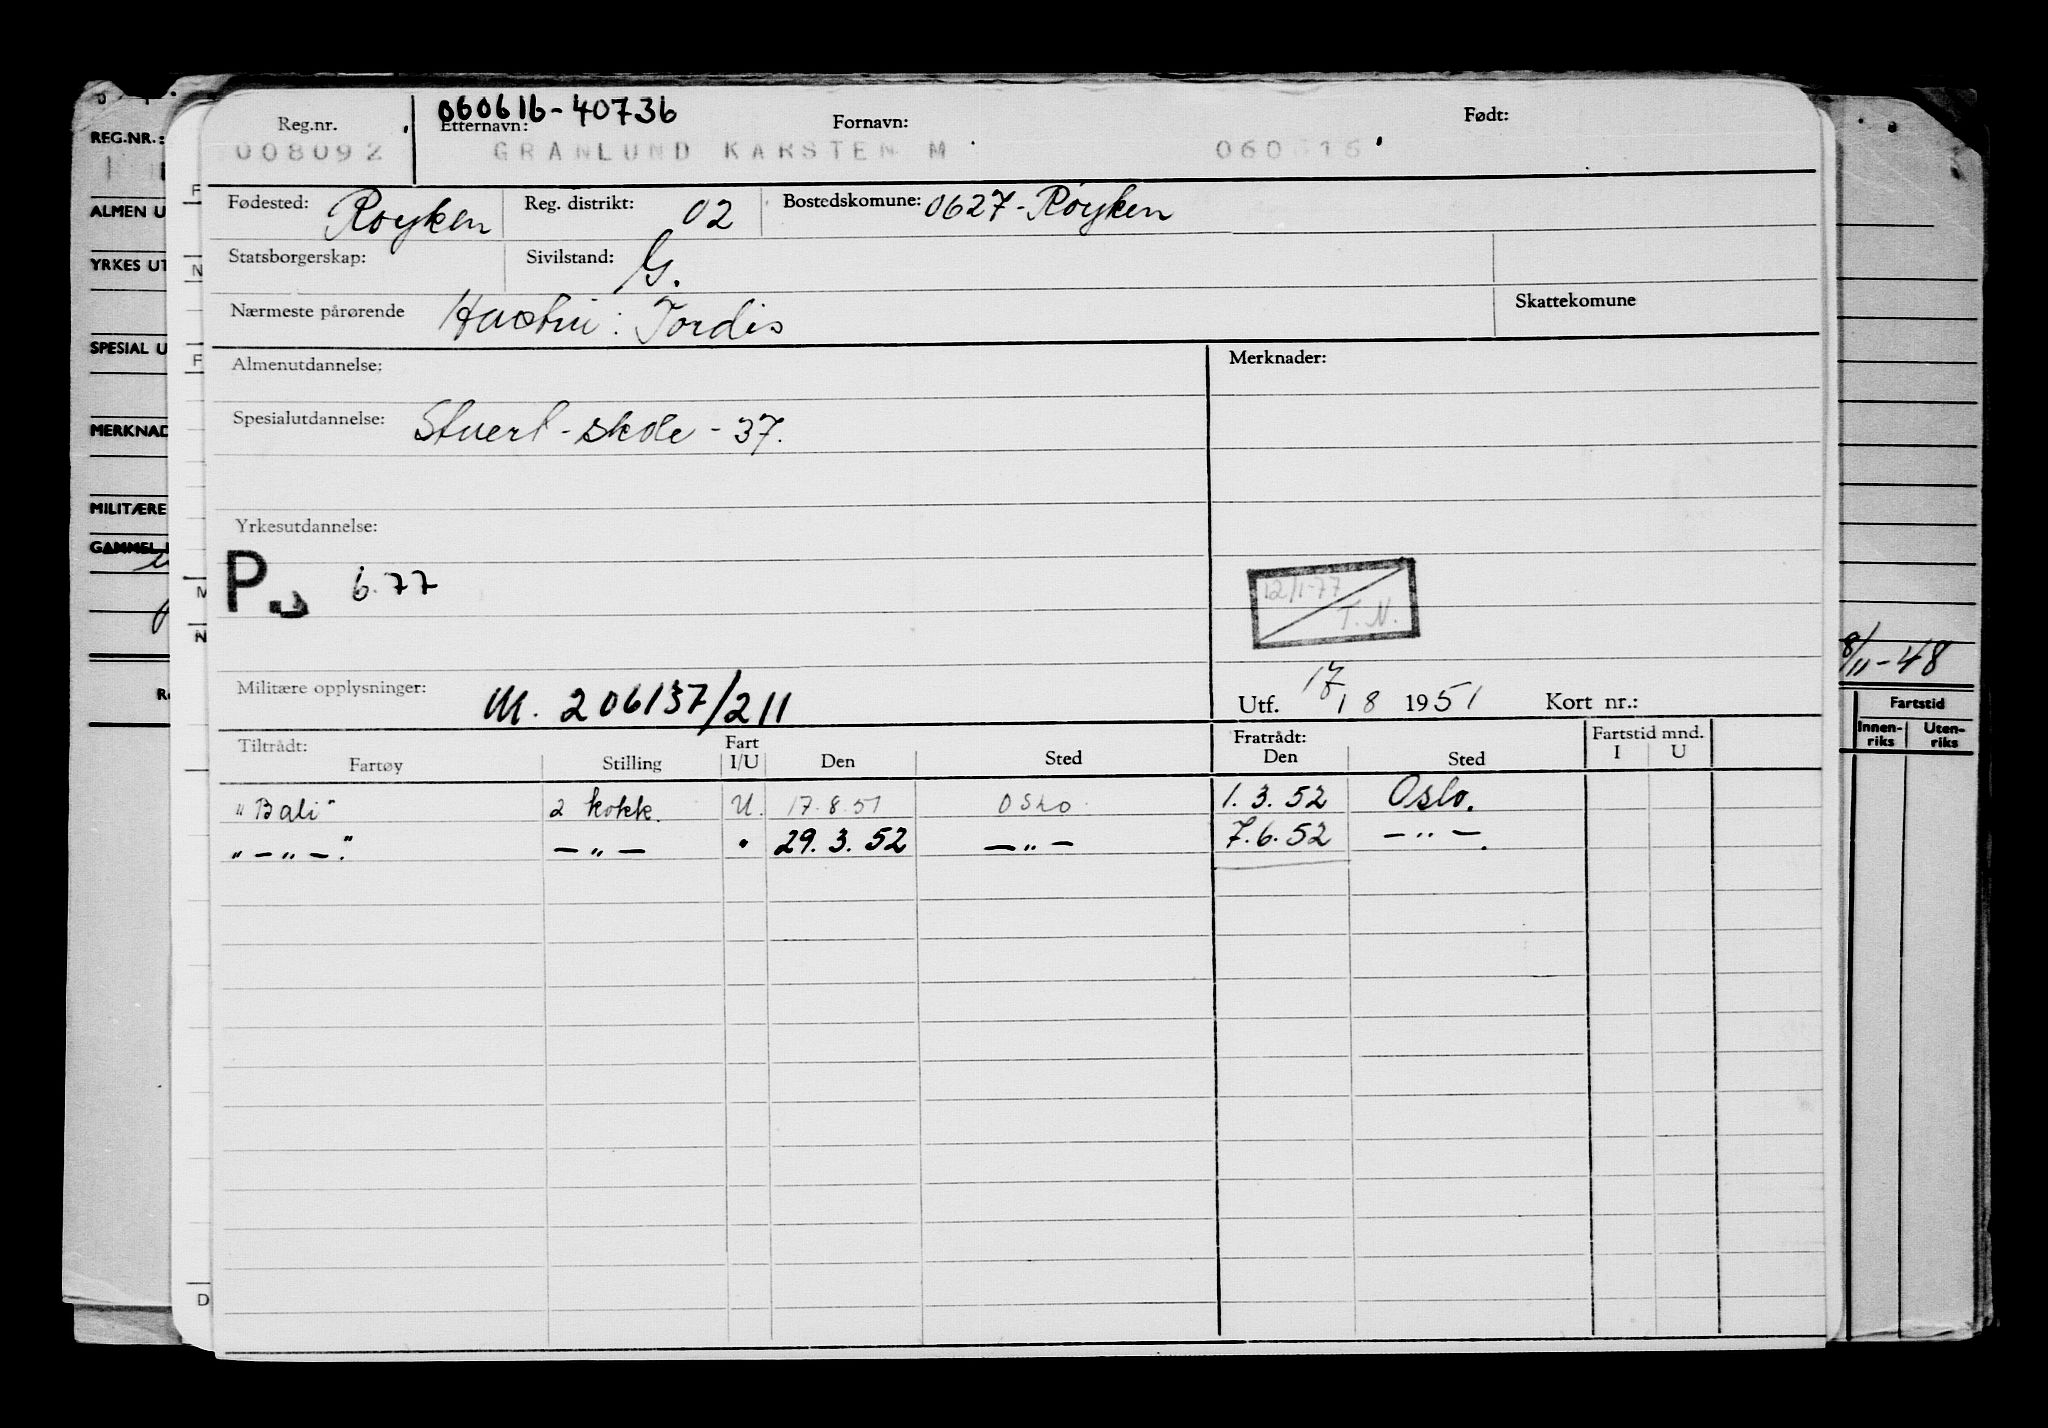 REG.NR.:
ALMEN U
YRKES UT
SPESIAL U
MERKNAD
MILITÆRE
GAMMEL
F
N
F
M
N
D
060616-40736
Reg.nr. Etternavn: Fornavn: Født:
008092 GRANLUND KARSTEN M 060616
Fødested: Røyken Reg. distrikt: 02 Bostedskomune: 0627-Røyken
Statsborgerskap: Sivilstand: G.
Nærmeste pårørende Hustru: Tordis Skattekomune
Almenutdannelse: Merknader:
Spesialutdannelse: Stuert-skole-37.
Yrkesutdannelse:
P. 6.77
12/1-77
T.N.
Militære opplysninger: M. 206137/211 Utf. 17/8 1951 Kort nr.:
Tiltrådt: Fart Fratrådt: Fartstid mnd.
Fartøy Stilling I/U Den Sted Den Sted I U
"Bali" 2 kokk. U. 17.8.51 Oslo. 1.3.52 Oslo.
"-"-." -"- " 29.3.52 -"- 7.6.52 -"-.
8/11-48
Fartstid
Innen-riks Uten-riks